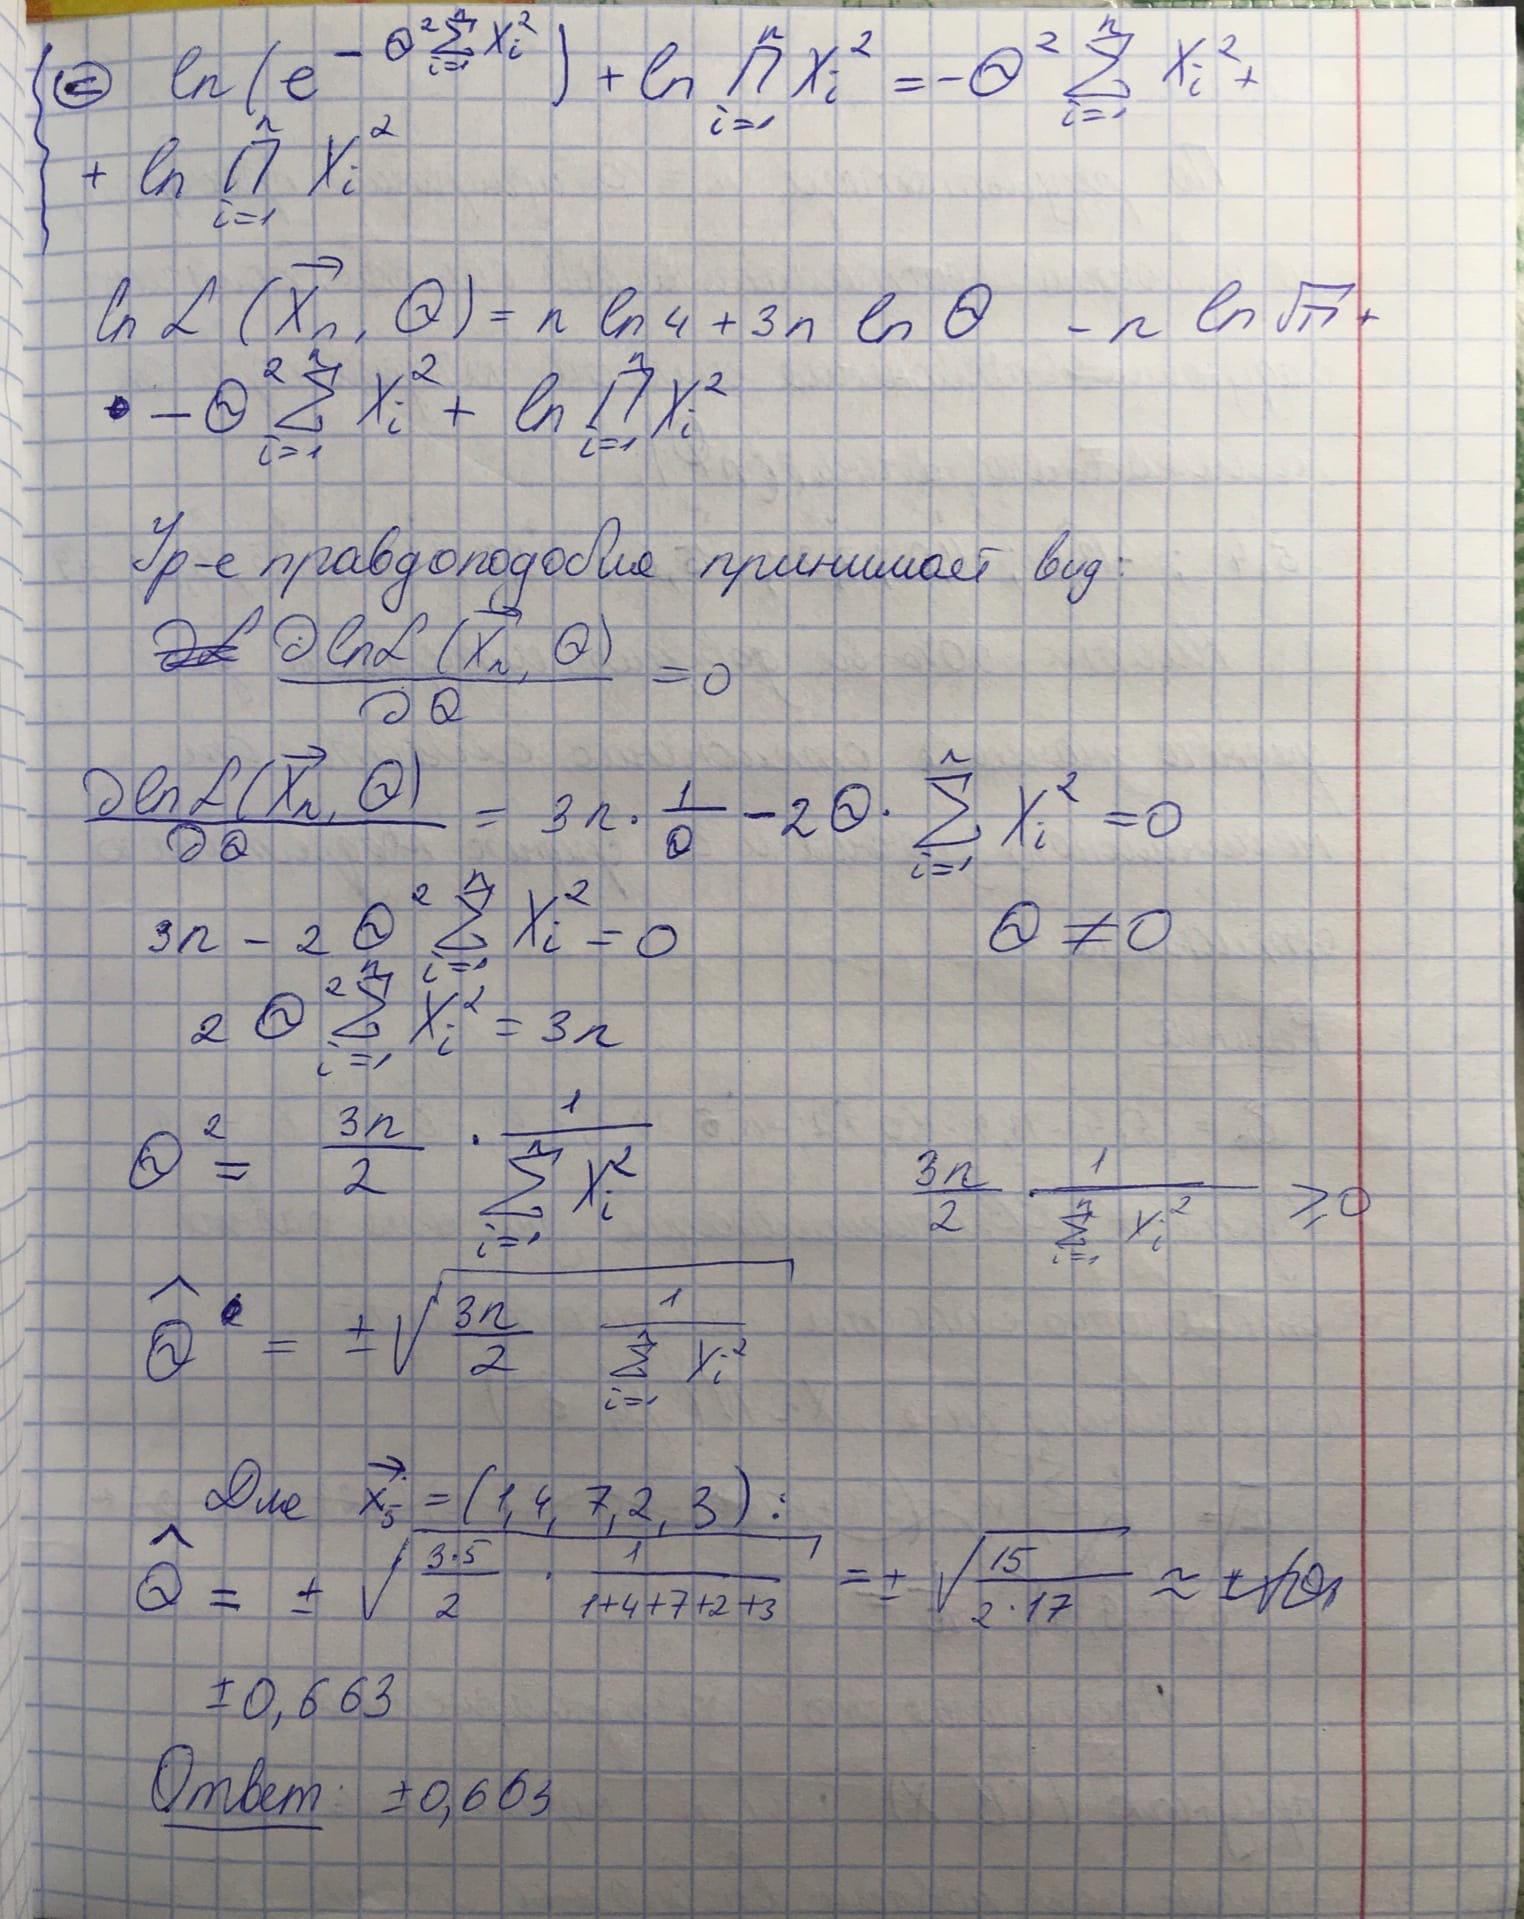 ⊜ ln(e^{-θ² ∑_{i=1}^{n} X_i²}) + ln ∏_{i=1}^{n} X_i² = -θ² ∑_{i=1}^{n} X_i² +
+ ln ∏_{i=1}^{n} X_i²
ln L(X⃗_n, θ) = n ln 4 + 3n ln θ - n ln √π +
- θ² ∑_{i=1}^{n} X_i² + ln ∏_{i=1}^{n} X_i²
Ур-е правдоподобия принимает вид:
∂ln L(X⃗_n, θ) / ∂θ = 0
∂ln L(X⃗_n, θ) / ∂θ = 3n · 1/θ - 2θ · ∑_{i=1}^{n} X_i² = 0
3n - 2θ² ∑_{i=1}^{n} X_i² = 0 θ ≠ 0
2θ² ∑_{i=1}^{n} X_i² = 3n
θ² = 3n/2 · 1/∑_{i=1}^{n} X_i² 3n/2 · 1/∑_{i=1}^{n} X_i² ⩾ 0
θ̂ = ±√(3n/2 1/∑_{i=1}^{n} X_i²)
Для x⃗_5 = (1, 4, 7, 2, 3):
θ̂ = ±√(3·5/2 · 1/(1+4+7+2+3)) = ±√(15/(2·17)) ≈
±0,663
Ответ: ±0,663